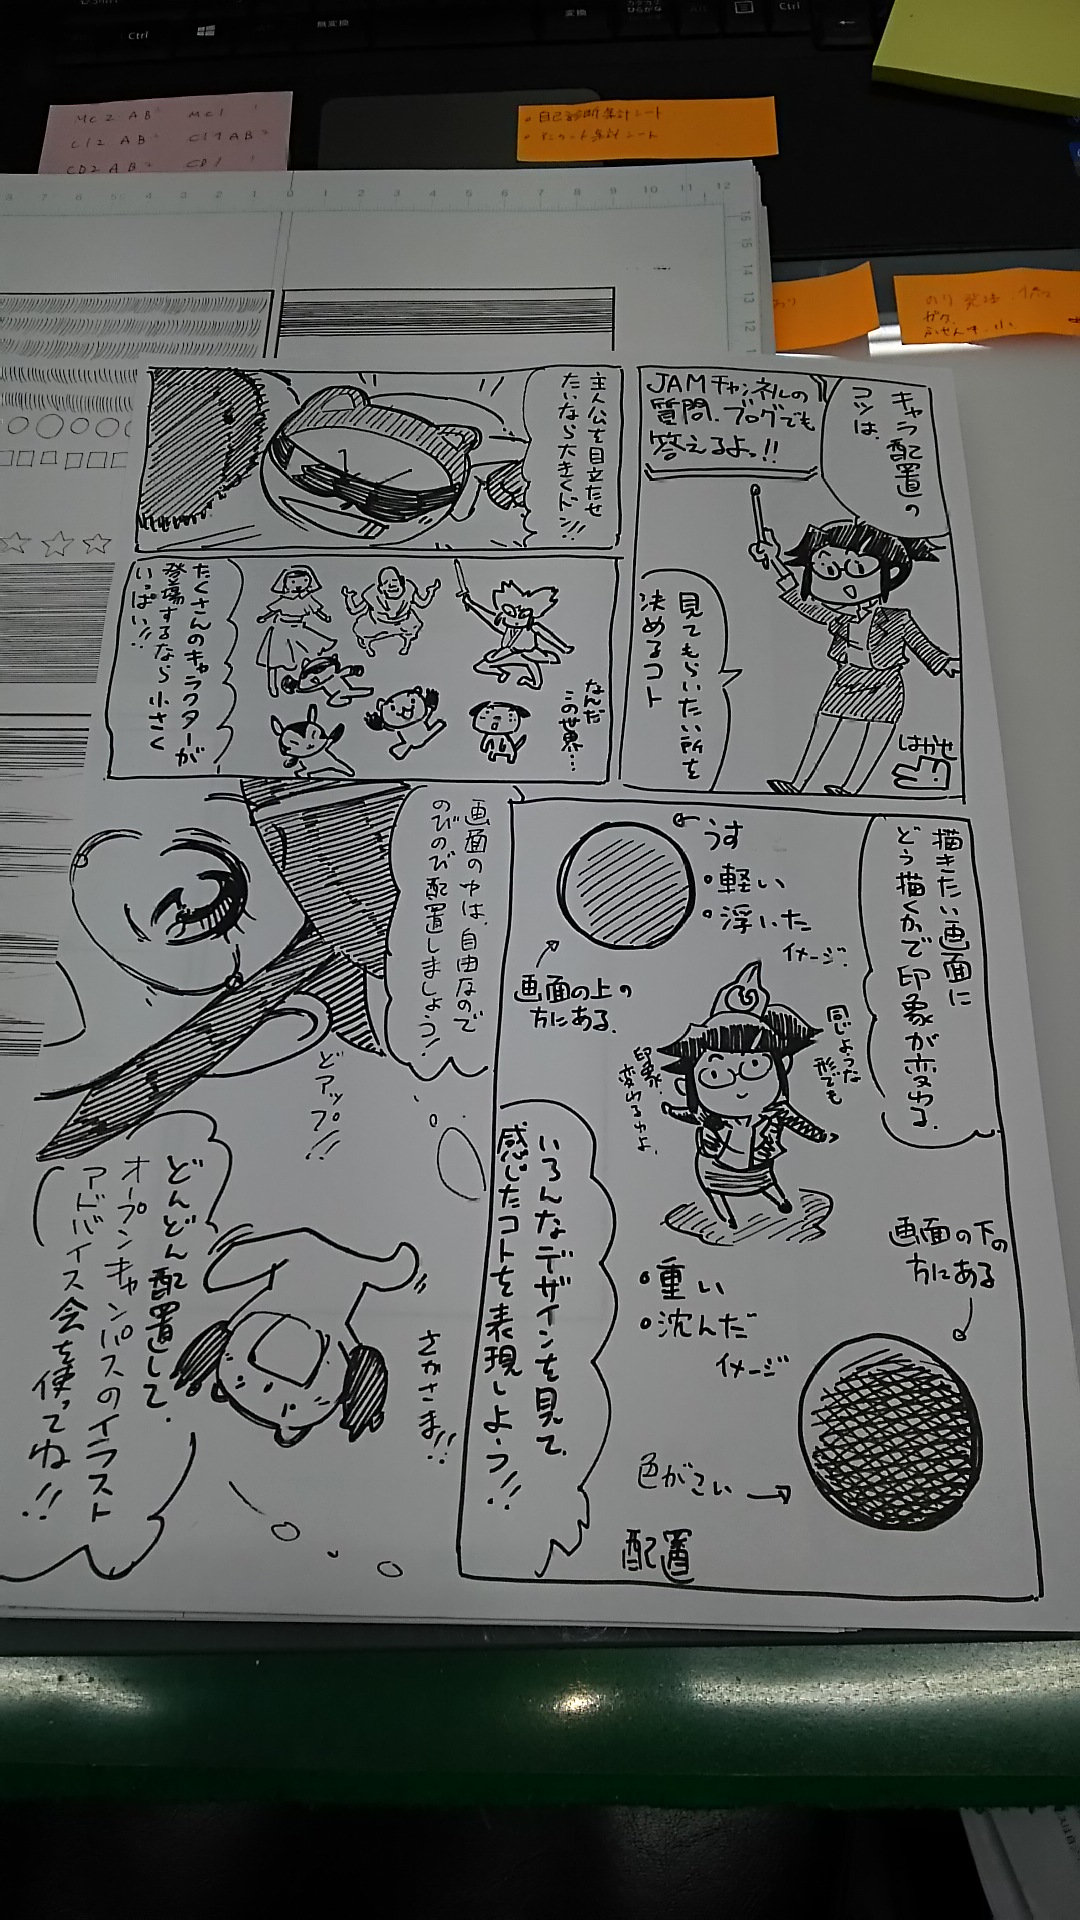 Ctrl
無変換
変換
カタカナ
ひらがな
Ctrl
MC2 AB MC1
CD2 AB CD1
・自己診断集計シート
5 4 3 2 1 0 1 2 3 4 5 6 7 8 9 10 11 12
16
15
14
13
12
キャラ配置の
コツは、
JAMチャンネルの
質問、ブログでも
答えるよっ!!
見てもらいたい所を
決めるコト
はかせ
主人公を目立たせ
たいなら大きくドン!!
たくさんのキャラクターが
登場するなら小さく
いっぱい!!
なんだ
この世界…
描きたい画面に
どう描くかで印象が変わる。
うす
・軽い
・浮いた
イメージ。
画面の上の
方にある。
同じような
形でも
印象
変わるわよ。
画面の下の
方にある
・重い
・沈んだ
イメージ
色がこい
いろんなデザインを見て、
感じたコトを表現しよう!!
配置
画面の中は、自由なので
のびのび配置しましょう!
どアップ!!
さかさま!!
どんどん配置して、
オープンキャンパスのイラスト
アドバイス会を使ってね!!